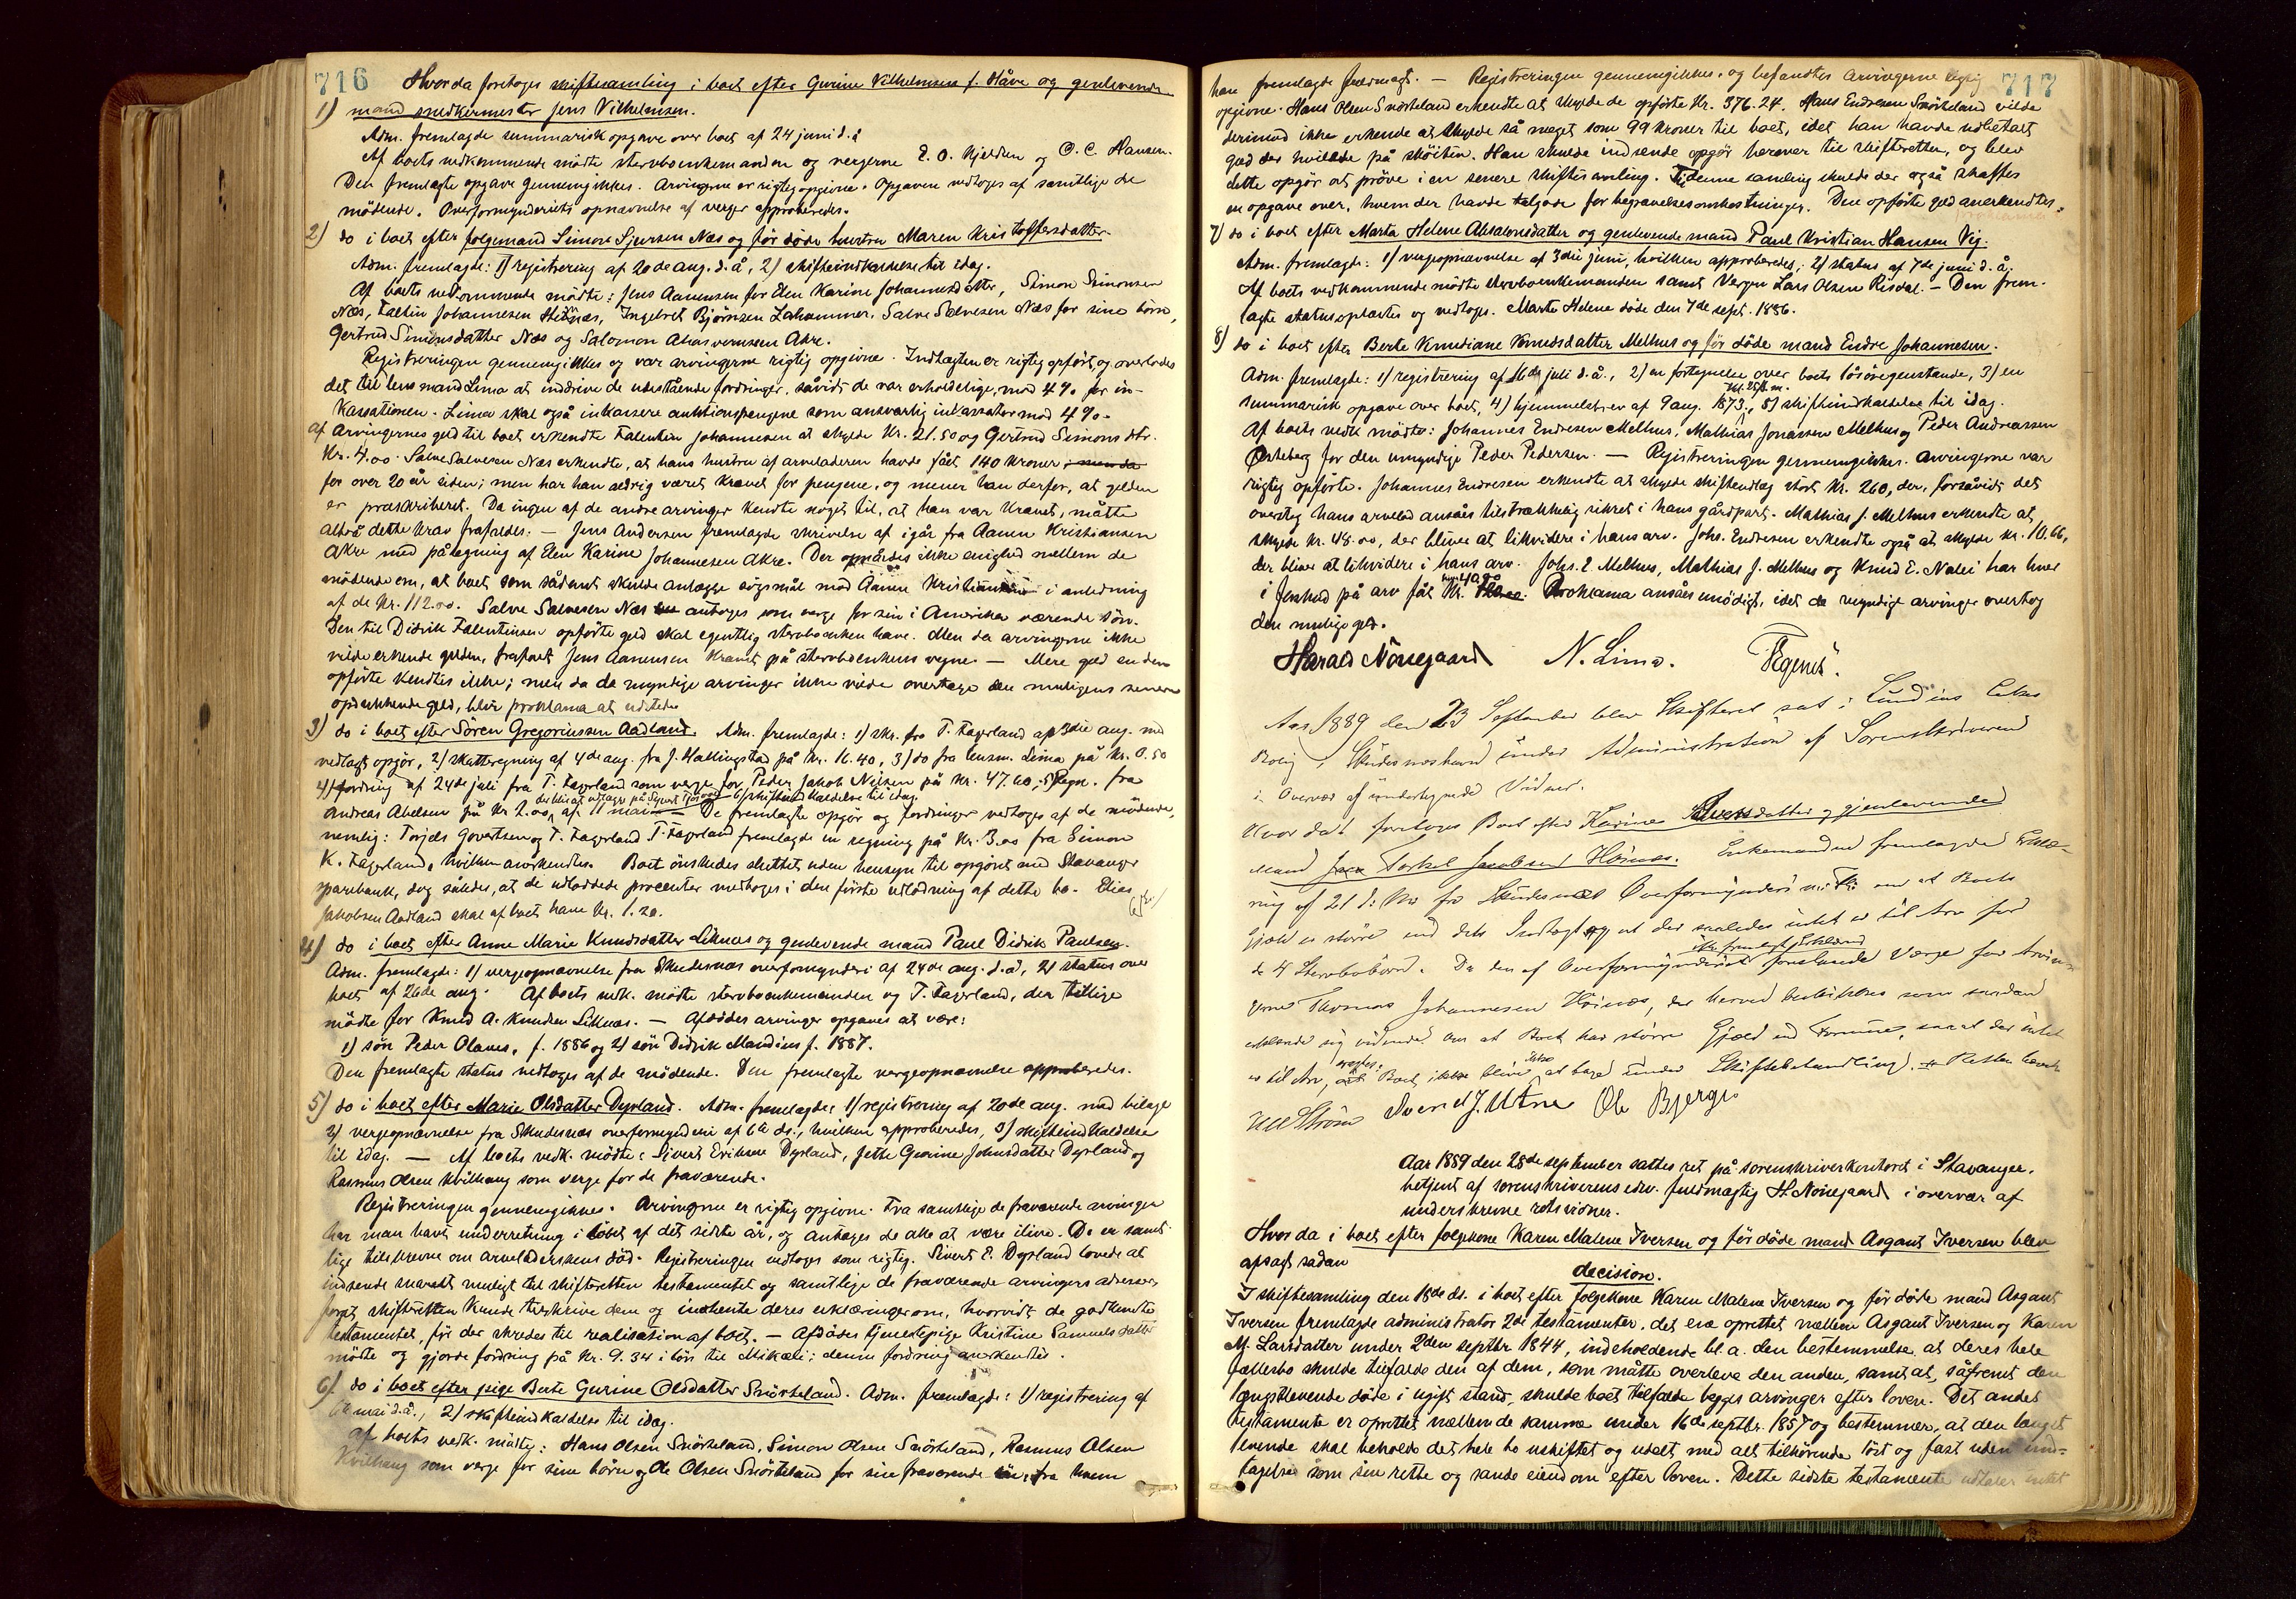 716
Hvorda foretoges skiftesamling i boet efter Gurine Vilhelmsen f. Håve og genlevende
1) mand snedkermester Jens Vilhelmsen.
Adm. fremlagde summarisk opgave over boet af 24 juni d. å
Af boets vedkommende mødte stervboenkemanden og vergerne E. O. Kjeldsen og O. C. Hansen.
Den fremlagte opgave gennemgikkes. Arvingerne er rigtig opgivne. Opgaven vedtoges af samtlige de
mødende. Overformynderiets opnævnelse af verger approberedes.
2) do i boet efter folgemand Simon Sjursen Næs og før døde hustru Maren Kristoffersdatter.
Adm. fremlagde: 1) registrering af 20de aug. d. å, 2) skifteindkaldelse til idag.
Af boets vedkommende mødte: Jens Aanensen for Elen Karine Johannesdatter, Simon Simonsen
Næs, Falentin Johannesen , Ingebret Bjørnsen Lahammer, Salve Salvesen Næs for sine børn,
Gertrud Simonsdatter Næs og Salomon Ahasverussen Akre.
Registreringen gennemgikkes og var arvingerne rigtig opgivne. Indtægten er rigtig opført, og overlodes
det til lensmand Lima at inddrive de udestående fordringer, såvidt de var erholdelige, mod 4 % for in-
kassationen. Lima skal også inkassere auktionspengene som ansvarlig inkassator mod 4 %.
Af arvingernes gæld til boet erkendte Falentin Johannesen at skylde Kr. 21.50 og Gertrud Simonsdtr.
Kr. 4.00. Salve Salvesen Næs erkendte, at hans hustru af arveladeren havde fået 140 kroner
for over 20 år siden; men har han aldrig været krævet for pengene, og mener han derfor, at gælden
er præskriberet. Da ingen af de andre arvinger kendte noget til, at han var krævet, måtte
altså dette krav frafaldes. — Jens Andersen fremlagde skrivelse af igår fra Aanen Kristiansen
Akre med påtegning af Elen Karine Johannesen Akre. Der opnåedes ikke enighed mellem de
mødende om, at boet som sådant skulde anlægge søgsmål mod Aanen Kristiansen i anledning
af de Kr. 112.00. Salve Salvesen Næs antoges som verge for sin i Amerika værende søn.
Den til Didrik Falentinsen opførte gæld skal egentlig stervboenken have. Men da arvingerne ikke
vilde erkende gælden, frafaldt Jens Aanensen kravet på stervboenkens vegne. — Mere gæld end den
opførte kendtes ikke; men da de myndige arvinger ikke vilde overtage den muligens senere
opdukkende gæld, blir proklama at udstede.
3) do i boet efter Sören Gregoriussen Aadland. Adm. fremlagde: 1) skr. fra T. Fagerland af 3die aug. med
vedlagt opgør, 2) skatteregning af 4de aug. fra J. Hallingstad på Kr. 16.40, 3) do fra lensm. Lima på Kr. 0.50
4) fordring af 24de juli fra T. Fagerland som verge for Peder Jakob Nilsen på Kr. 47.60, 5) Regn. fra
Andreas Abelsen på Kr 2.00, af 11 mai 6) skifteindkaldelse til idag.
De fremlagte opgør og fordringer vedtoges af de mødende,
nemlig: Torjels Govertsen og T. Fagerland. T. Fagerland fremlagde en regning på Kr. 3.00 fra Simon
K. Fagerland, hvilken anerkendtes. Boet ønskedes sluttet uden hensyn til opgjøret med Stavanger
sparebank, dog således, at de udloddede procenter medtoges i den første utlodning af dette bo. Elias
Jakobsen Aadland skal af boet have Kr. 1.20.
4) do i boet efter Anne Marie Knudsdatter Liknæs og genlevende mand Paul Didrik Paulsen.
Adm. fremlagde: 1) vergeopnævnelse fra Skudesnæs overformynderi af 24de aug. d. å, 2) status over
boet af 26de aug. Af boets vedk. mødte stervboenkemanden og T. Fagerland, der tillige
mødte for Knud A. Knudsen Liknæs. — Afdødes arvinger opgaves at være:
1) søn Peder Olaves, f. 1886 og 2) søn Didrik Mandius f. 1887.
Den fremlagte status vedtoges af de mødende. Den fremlagte vergeopnævnelse approberedes.
5) do i boet efter Marie Olsdatter Dyrland. Adm. fremlagde: 1) registrering af 20de aug. med bilage
2) vergeopnævnelse fra Skudesnæs overformynderi af 6te ds., hvilken approberedes, 3) skifteindkaldelse
til idag. — Af boets vedk. mødte: Sivert Eriksen Dyrland, Jette Gurine Johnsdatter Dyrland og
Rasmus Olsen Kvilhaug som verge for de fraværende.
Registreringen gennemgikkes. Arvingerne er rigtig opgivne. Fra samtlige de fraværende arvinger
har man havt underretning i løbet af det sidste år, og antages de alle at være ilive. De er samt-
lige tilskrevne om arveladerskens død. Registreringen vedtoges som rigtig. Sivert E. Dyrland lovede at
indsende snarest muligt til skifteretten testamentet og samtlige de fraværende arvingers adresser,
forat skifteretten kunde tilskrive dem og indhente deres erklæringer om, hvorvidt de godkendte
testamentet, før der skredes til realisation af boet. — Afdødes tjenestepige Kristine Samuelsdatter
mødte og gjorde fordring på Kr. 9.34 i løn til Mikæli; denne fordring anerkendtes.
6) do i boet efter pige Berte Gurine Olsdatter Snörteland. Adm. fremlagde: 1) registrering af
mai d. å., 2) skifteindkaldelse til idag.
Af boets vedk. mødte: Hans Olsen Snörteland, Simon Olsen Snörteland, Rasmus Olsen
Kvilhaug som verge for sine børn og Ole Olsen Snörteland for sin fraværende , fra hvem
717
han fremlagde fuldmagt. — Registreringen gennemgikkes, og befandtes arvingerne rigtig
opgivne. Hans Olsen Snörteland erkendte at skylde de opførte Kr. 376.24. Hans Endresen Snörteland vilde
derimod ikke erkende at skylde så meget som 99 kroner til boet, idet han havde udbetalt
gæld der hvilede på skøiten. Han skulde indsende opgör herover til skifteretten, og blev
dette opgør at prøve i en senere skiftesamling. Til denne samling skulde der også skaffes
en opgave over, hvem der havde tilgode for begravelsesomkostninger. Den opførte gæld anerkendtes.
7) do i boet efter Marta Helene Absalonsdatter og genlevende mand Paul Kristian Hansen Vig.
Adm. fremlagde: 1) vergeopnævnelse af 3die juni, hvilken approberedes; 2) status af 7de juni d. å.
Af boets vedkommende mødte stervboenkemanden samt vergen Lars Olsen Risdal. — Den frem-
lagte status oplæstes og vedtoges. Marta Helene døde den 7de sept. 1886.
8) do i boet efter Berte Knudiane Knudsdatter Melhus og før døde mand Endre Johannesen.
Adm. fremlagde: 1) registrering af 16de juli d. å., 2) en fortegnelse over boets løsøregenstande, 3) en
summarisk opgave over boet, 4) hjemmelsbrev af 9 aug. 1873, 5) skifteindkaldelse til idag.
Af boets vedk mødte: Johannes Endresen Melhus, Mathias Jonassen Melhus og Peder Andreassen
Østebøg for den umyndige Peder Pedersen. — Registreringen gennemgikkes. Arvingerne var
rigtig opførte. Johannes Endresen erkendte at skylde skifteudlæg stort Kr. 260, der, forsåvidt det
oversteg hans arvelod ansåes tilstrækkelig sikret i hans gårdpart. Mathias J. Melhus erkendte at
skylde Kr. 48.00, der bliver at likvidere i hans arv. Johs. Endresen erkendte også at skylde Kr. 10.66,
der bliver at likvidere i hans arv. Johs. E. Melhus, Mathias J. Melhus og Knud E. Nalei har hver
i forskud på arv fåt Kr. 40.00. Proklama ansåes unødigt, idet de myndige arvinger overtog
den mulige gæld.
Harald Nörregaard N. Lima.
Aar 1889 den 23 September blev Skifteret sat i Lundins Enkes
Bolig i Skudesneshavn under Administration af Sorenskriveren
i Overvær af undertegnede Vidner.
Hvor da foretoges Boet efter Karine Iversdatter og gjenlevende
Mand Torkel Jacobsen Höinæs. Enkemanden fremlagde Erklæ-
ring af 21 d: M: fra Skudesnæs Overformynderi om at Boets
Gjæld er större end dets Indtægt og at der saaledes intet er til Arv for
de 4 Stervbobörn. Da den af Overformynderiet foreslaaede Værge for Arvin-
gerne Thomas Johannesen Höinæs, der herved beskikkes som saadan
erklærede sig vidende om at Boet har större Gjæld end Formue, saa at der intet
er til Arv, vil Boet ikke blive at tage under Skiftebehandling. Retten hævet
Svend J. Utne Ole Bjerge
Aar 1889 den 28de september sattes ret på sorenskriverkontoret i Stavanger,
betjent af sorenskriverens edsv. fuldmægtig H. Nörregaard i overvær af
underskrevne retsvidner.
Hvor da i boet efter folgekone Karen Malene Iversen og før døde mand Asgaut Iversen blev
afsagt sådan
decision.
I skiftesamling den 18de ds. i boet efter folgekone Karen Malene Iversen og før døde mand Asgaut
Iversen fremlagde administrator 2de testamenter, det ene oprettet mellem Asgaut Iversen og Karen
M. Larsdatter under 2den septbr 1844, indeholdende bl. a. den bestemmelse, at deres hele
fællesbo skulde tilfalde den af dem, som måtte overleve den anden, samt at, såfremt den
længstlevende døde i ugift stand, skulde boet tilfalde begges arvinger efter loven. Det andet
testamente er oprettet mellem de samme under 16de septbr. 1857 og bestemmer, at den længst
levende skal beholde det hele bo uskiftet og udelt med alt tilhørende løst og fast uden und-
tagelse som sin rette og sande eiendom efter loven. Dette sidste testamente udtaler intet